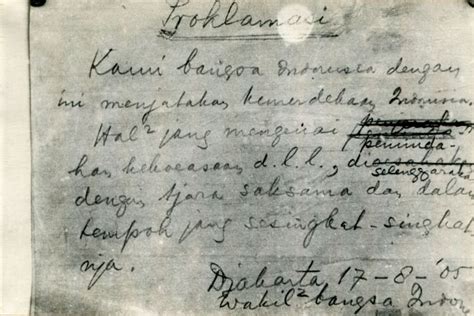 Proklamasi
Kami bangsa Indonesia dengan
ini menjatakan kemerdekaan Indonesia
Hal² jang mengenai
peminda-
han kekoeasaan d.l.l., dioesahakan
selenggarakan
dengan tjara saksama dan dalam
tempoh jang sesingkat-singkat
nja.
Djakarta 17-8-'05
Wakil² bangsa Indon